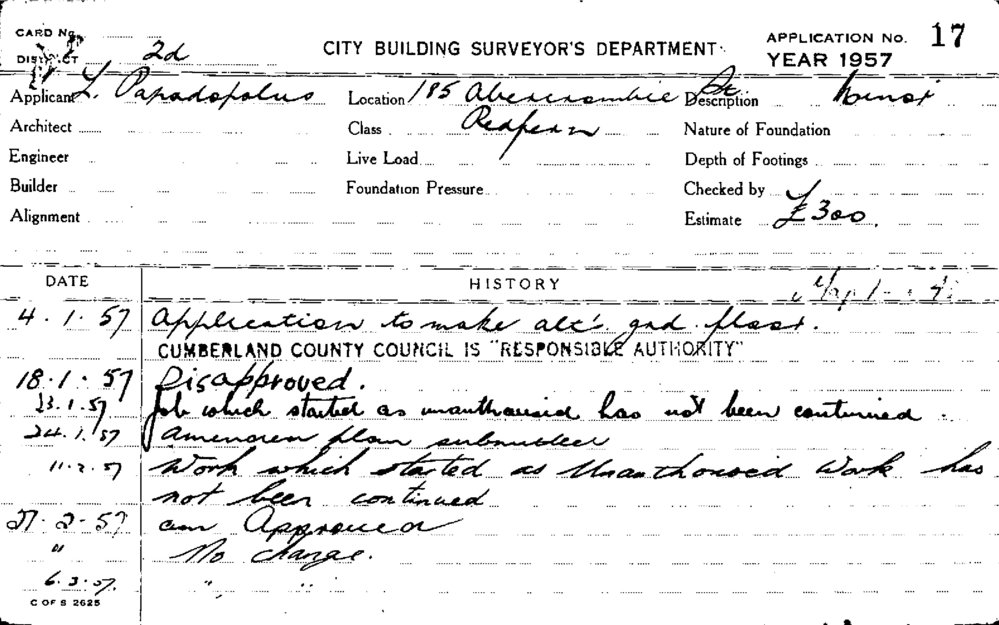 CARD No.
DISTRICT 2d
CITY BUILDING SURVEYOR'S DEPARTMENT
APPLICATION No. 17
YEAR 1957
Applicant L. Papadopolus Location 185 Abercrombie St Description Minor
Architect Class Redfern Nature of Foundation
Engineer Live Load Depth of Footings
Builder Foundation Pressure Checked by
Alignment Estimate £300.
DATE HISTORY
4.1.57 Application to make alt's gnd floor.
CUMBERLAND COUNTY COUNCIL IS "RESPONSIBLE AUTHORITY"
18.1.57 Disapproved.
23.1.57 Job which started as unauthorised has not been continued.
24.1.57 Amended plan submitted
11.2.57 Work which started as Unauthorised Work has
not been continued
27.2.57 am Approved
" No change.
6.3.57. " "
C OF S 2625